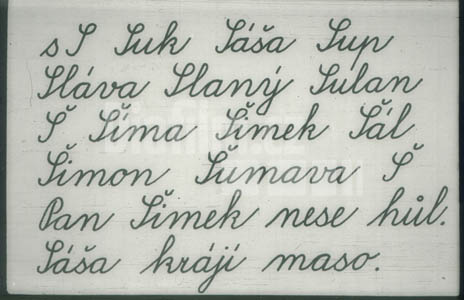 s S Suk Sáša Sup
Sláva Slaný Sulan
Š Šíma Šimek Šál
Šimon Šumava Š
Pan Šimek nese hůl.
Sáša krájí maso.